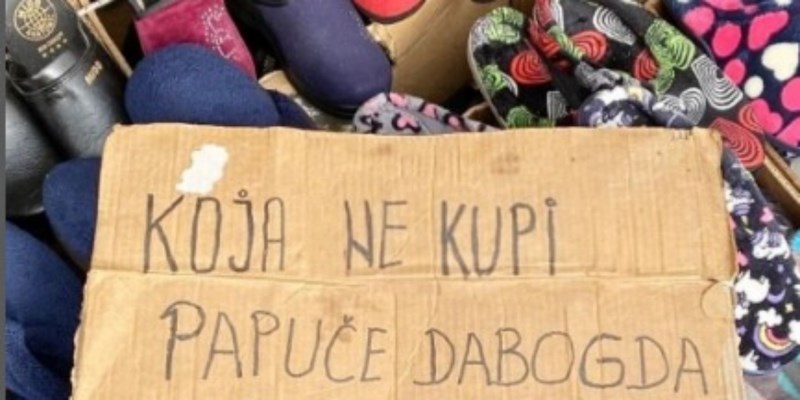 KOJA NE KUPI
PAPUČE DABOGDA